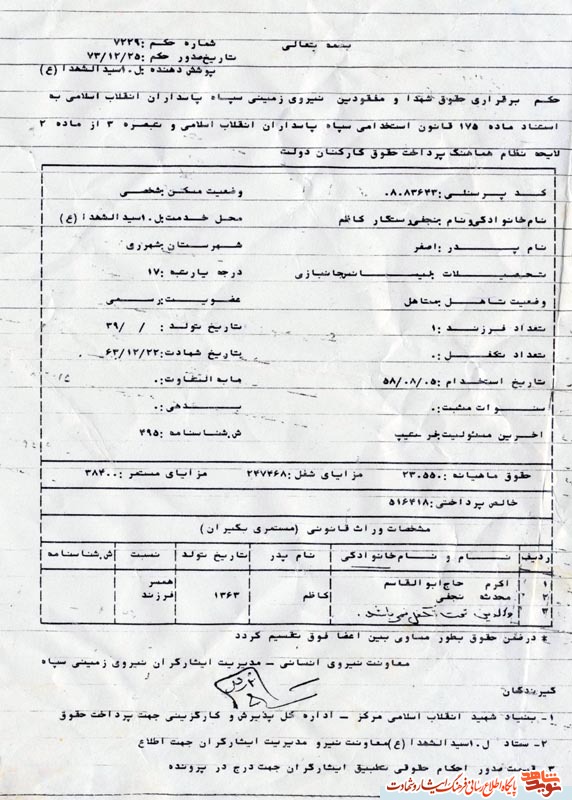 بسمه تعالی
شماره حکم :۷۲۲۹
تاریخ صدور حکم :۷۳/۱۲/۲۵
پوشش دهنده :ل.۱۰سیدالشهدا(ع)
حکم برقراری حقوق شهدا و مفقودین نیروی زمینی سپاه پاسداران انقلاب اسلامی به
استناد ماده ۱۷۵ قانون استخدامی سپاه پاسداران انقلاب اسلامی و تبصره ۳ از ماده ۲
لایحه نظام هماهنگ پرداخت حقوق کارکنان دولت
کد پرسنلی :۰۸۰۸۳۶۴۳ وضعیت مسکن :شخصی
نام خانوادگی و نام :نجفی رستگار کاظم محل خدمت :ل.۱۰سیدالشهدا(ع)
نام پدر :اصغر شهرستان :شهرری
تحصیلات :لیسانس جانبازی درجه یا رتبه :۱۷
وضعیت تاهل :متاهل عضویت :رسمی
تعداد فرزند :۱ تاریخ تولد : / /۳۹
تعداد تکفل :۰ تاریخ شهادت :۶۳/۱۲/۲۲
تاریخ استخدام :۵۸/۰۸/۰۵ مابه التفاوت :۰
سنوات مثبت :۰ بدهی :۰
اخرین مسئولیت :فر تیپ ش.شناسنامه :۴۹۵
حقوق ماهیانه :۲۳۰۵۵۰ مزایای شغل :۲۴۷۴۶۸ مزایای مستمر :۳۸۴۰۰
خالص پرداختی :۵۱۶۴۱۸
مشخصات وراث قانونی (مستمری بگیران)
ردیف نام و نام خانوادگی نام پدر تاریخ تولد نسبت ش.شناسنامه
۱ اکرم حاج ابوالقاسم همسر
۲ محدثه نجفی کاظم ۱۳۶۳ فرزند
۳ والدین تحت تکفل می‌باشند .
* درضمن حقوق بطور مساوی بین اعضا فوق تقسیم گردد
معاونت نیروی انسانی - مدیریت ایثارگران نیروی زمینی سپاه
گیرندگان
۱- بنیاد شهید انقلاب اسلامی مرکز - اداره کل پذیرش و کارگزینی جهت پرداخت حقوق
۲- ستاد ل.۱۰سیدالشهدا(ع)معاونت نیرو مدیریت ایثارگران جهت اطلاع
۳ قسمت صدور احکام حقوقی تطبیق ایثارگران جهت درج در پرونده
نوید شاهد
پایگاه اطلاع رسانی فرهنگ ایثار و شهادت